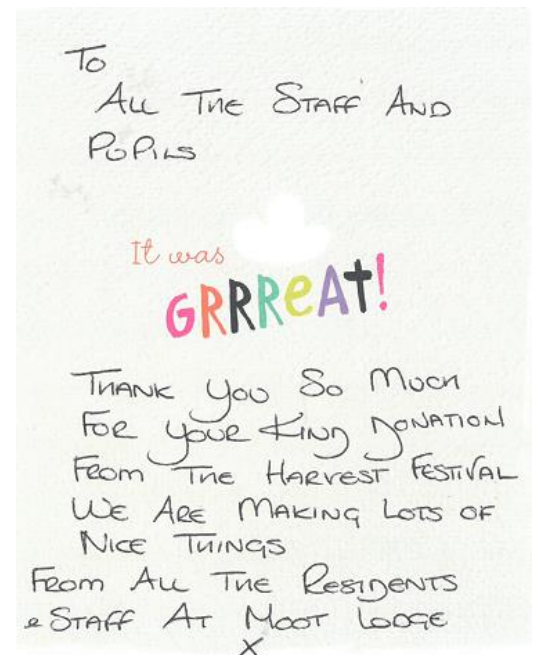 To
All The Staff And
Pupils
It was
GRRReAt!
Thank You So Much
For Your Kind Donation
From The Harvest Festival
We Are Making Lots of
Nice Things
From All The Residents
& Staff At Moot Lodge
X